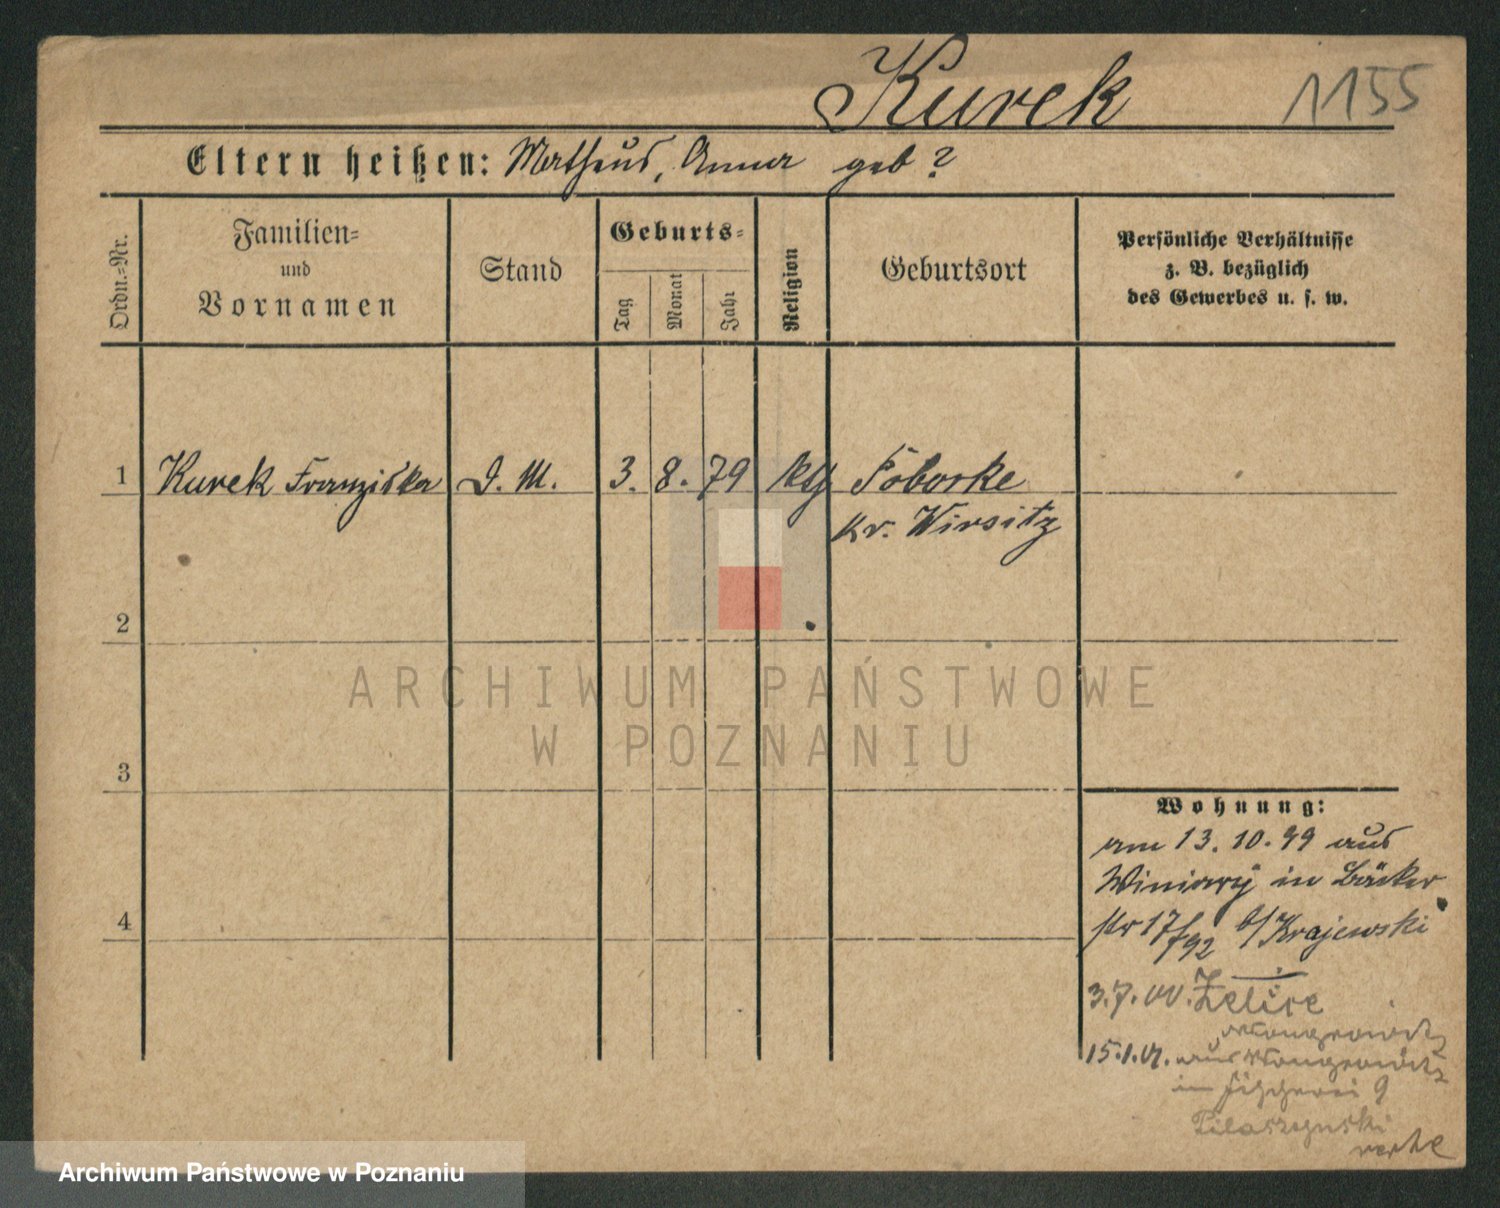 Kurek 1155
Eltern heißen: Matheus, Anna geb ?
Ordn.=Nr.
Familien=
und
Vornamen
Stand
Geburts=
Tag
Monat
Jahr
Religion
Geburtsort
Persönliche Verhältnisse
z. B. bezüglich
des Gewerbes u. s. w.
1 Kurek Franziska D. M. 3. 8. 79 ktg Toborke
Kr. Wirsitz
2
3
4
ARCHIWUM PAŃSTWOWE
W POZNANIU
Wohnung:
am 13. 10. 99 aus
Winiary in Bäcker
str 17 b/ Krajewski
3. 7. 00.
15. 1. 01. aus
in Fischerei 9
Archiwum Państwowe w Poznaniu